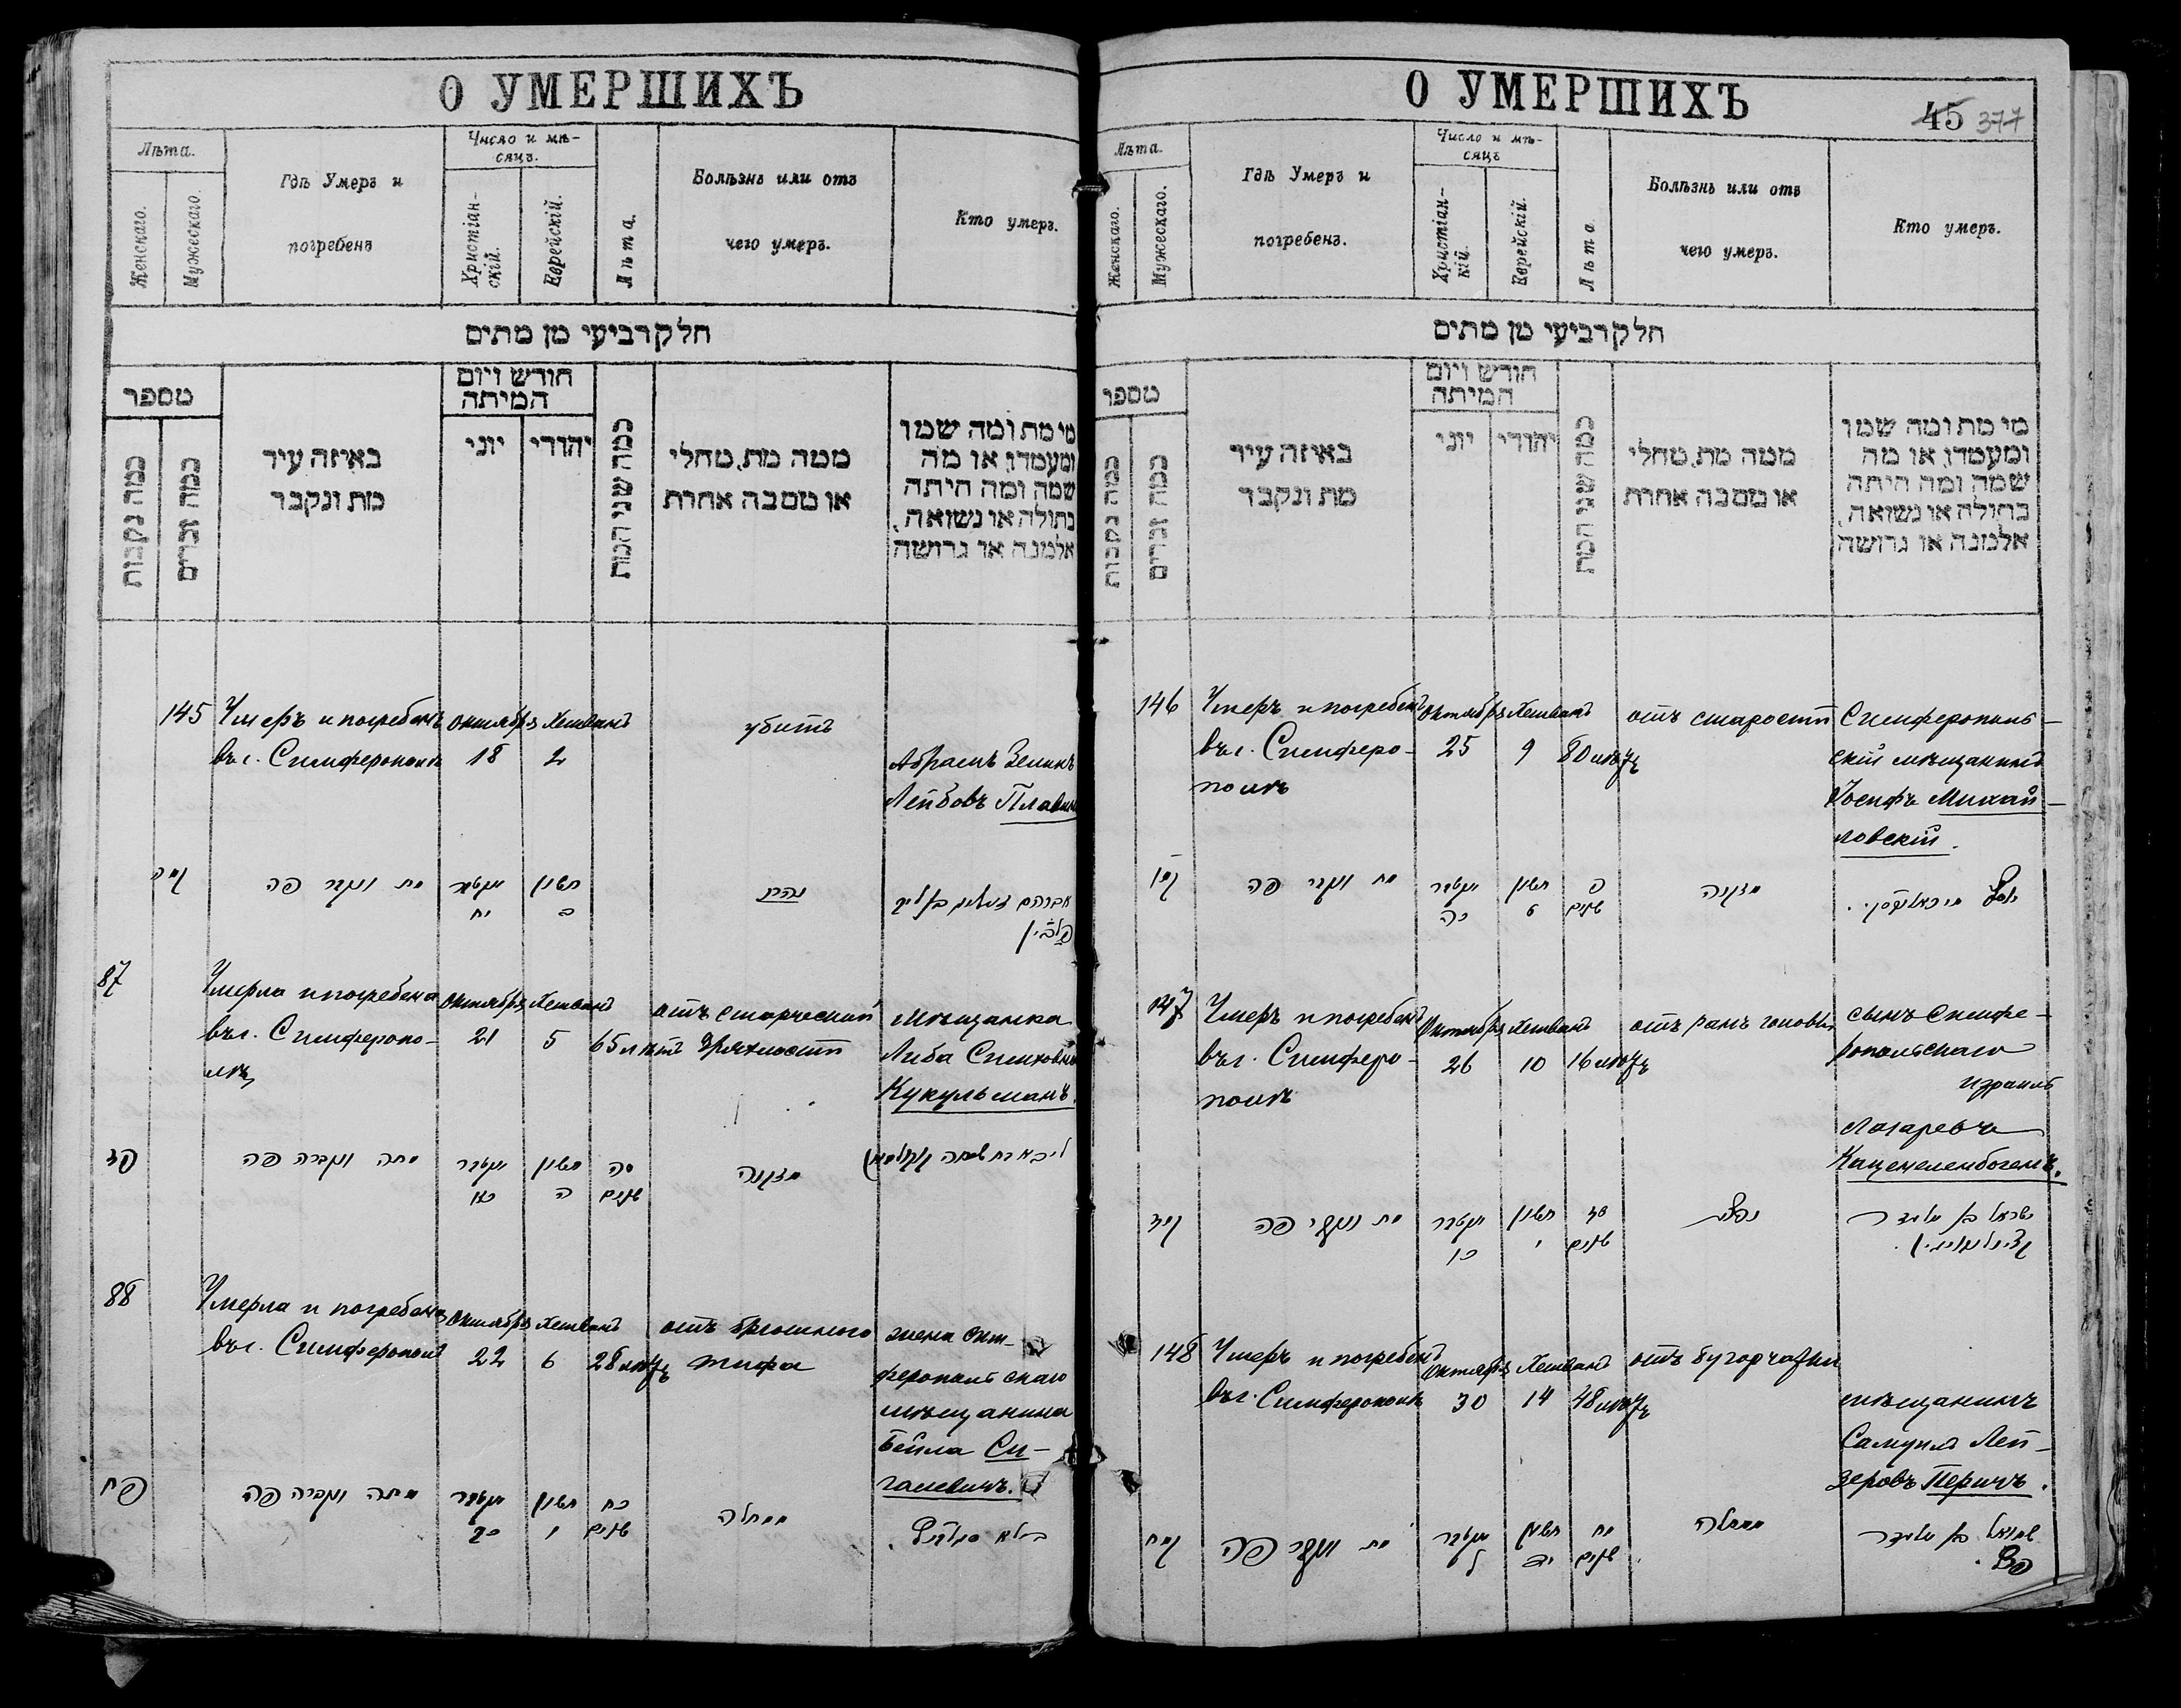 О УМЕРШИХЪ
Лѣта.
Женскаго.
Мужескаго.
Гдѣ Умеръ и
погребенъ
Число и мѣ-
сяцъ.
Христіан-
скій.
Еврейскій.
Лѣта.
Болѣзнь или отъ
чего умеръ.
Кто умеръ.
חלק רביעי מן מתים
מספר
כמה נקבות
כמה זכרים
באיזה עיר
מת ונקבר
חודש ויום
המיתה
יוני
יהודי
כמה שני המת
ממה מת, מחלי
או מסבה אחרת
מי מת ומה שמו
ומעמדו, או מה
שמה ומה היתה
בתולה או נשואה,
אלמנה או גרושה
145
Умеръ и погребенъ
въ г. Симферополѣ
Октября
18
Хешванъ
2
убитъ
Абрамъ Зеликъ
Лейбовъ
קמה
מת ונקבר פה
אקטאבר
יח
חשון
ב
נהרג
אברהם זעליק בן ליב
פלאבין
87
Умерла и погребена
въ г. Симферопо-
лѣ
Октября
21
Хешванъ
5
65 лѣтъ
отъ старческой
дряхлости
мѣщанка
Либа Симховна
Кукульманъ.
פז
מתה ונקברה פה
אקטאבר
כא
חשון
ה
סה
שנים
מזקנה
ליבא בת שמחה קוקולמאן
88
Умерла и погребена
въ г. Симферополѣ
Октября
22
Хешванъ
6
28 лѣтъ
отъ брюшного
тифа
жена Сим-
феропольскаго
мѣщанина
Бейла Си-
галевичъ.
פח
מתה ונקברה פה
אקטאבר
כב
חשון
ו
כח
שנים
ממחלה
ביילא
О УМЕРШИХЪ
45 377
Лѣта.
Женскаго.
Мужескаго.
Гдѣ Умеръ и
погребенъ.
Число и мѣ-
сяцъ
Христіан-
кій.
Еврейскій.
Лѣта.
Болѣзнь или отъ
чего умеръ.
Кто умеръ.
חלק רביעי מן מתים
מספר
כמה נקבות
כמה זכרים
באיזה עיר
מת ונקבר
חודש ויום
המיתה
יוני
יהודי
כמה שני המת
ממה מת, מחלי
או מסבה אחרת
מי מת ומה שמו
ומעמדו, או מה
שמה ומה היתה
בתולה או נשואה,
אלמנה או גרושה
146
Умеръ и погребенъ
въ г. Симферо-
полѣ
Октября
25
Хешванъ
9
80 лѣтъ
отъ старости
Симферополь-
скій мѣщанинъ
Іосифъ Михай-
ловскій.
קמו
מת ונקבר פה
אקטאבר
כה
חשון
ט
פ
שנים
מזקנה
יוסף
147
Умеръ и погребенъ
въ г. Симферо-
полѣ
Октября
26
Хешванъ
10
16 лѣтъ
отъ ранъ головы
сынъ Симфе-
ропольскаго
Израиль
Лазаревъ
Каценеленбогенъ.
קמז
מת ונקבר פה
אקטאבר
כו
חשון
י
שנים
ישראל בן אליעזר
148
Умеръ и погребенъ
въ г. Симферополѣ
Октября
30
Хешванъ
14
48 лѣтъ
отъ бугорчатки
мѣщанинъ
Самуилъ Лей-
зеровъ Перичъ.
קמח
מת ונקבר פה
אקטאבר
ל
חשון
יד
מח
שנים
ממחלה
שמואל בן אליעזר